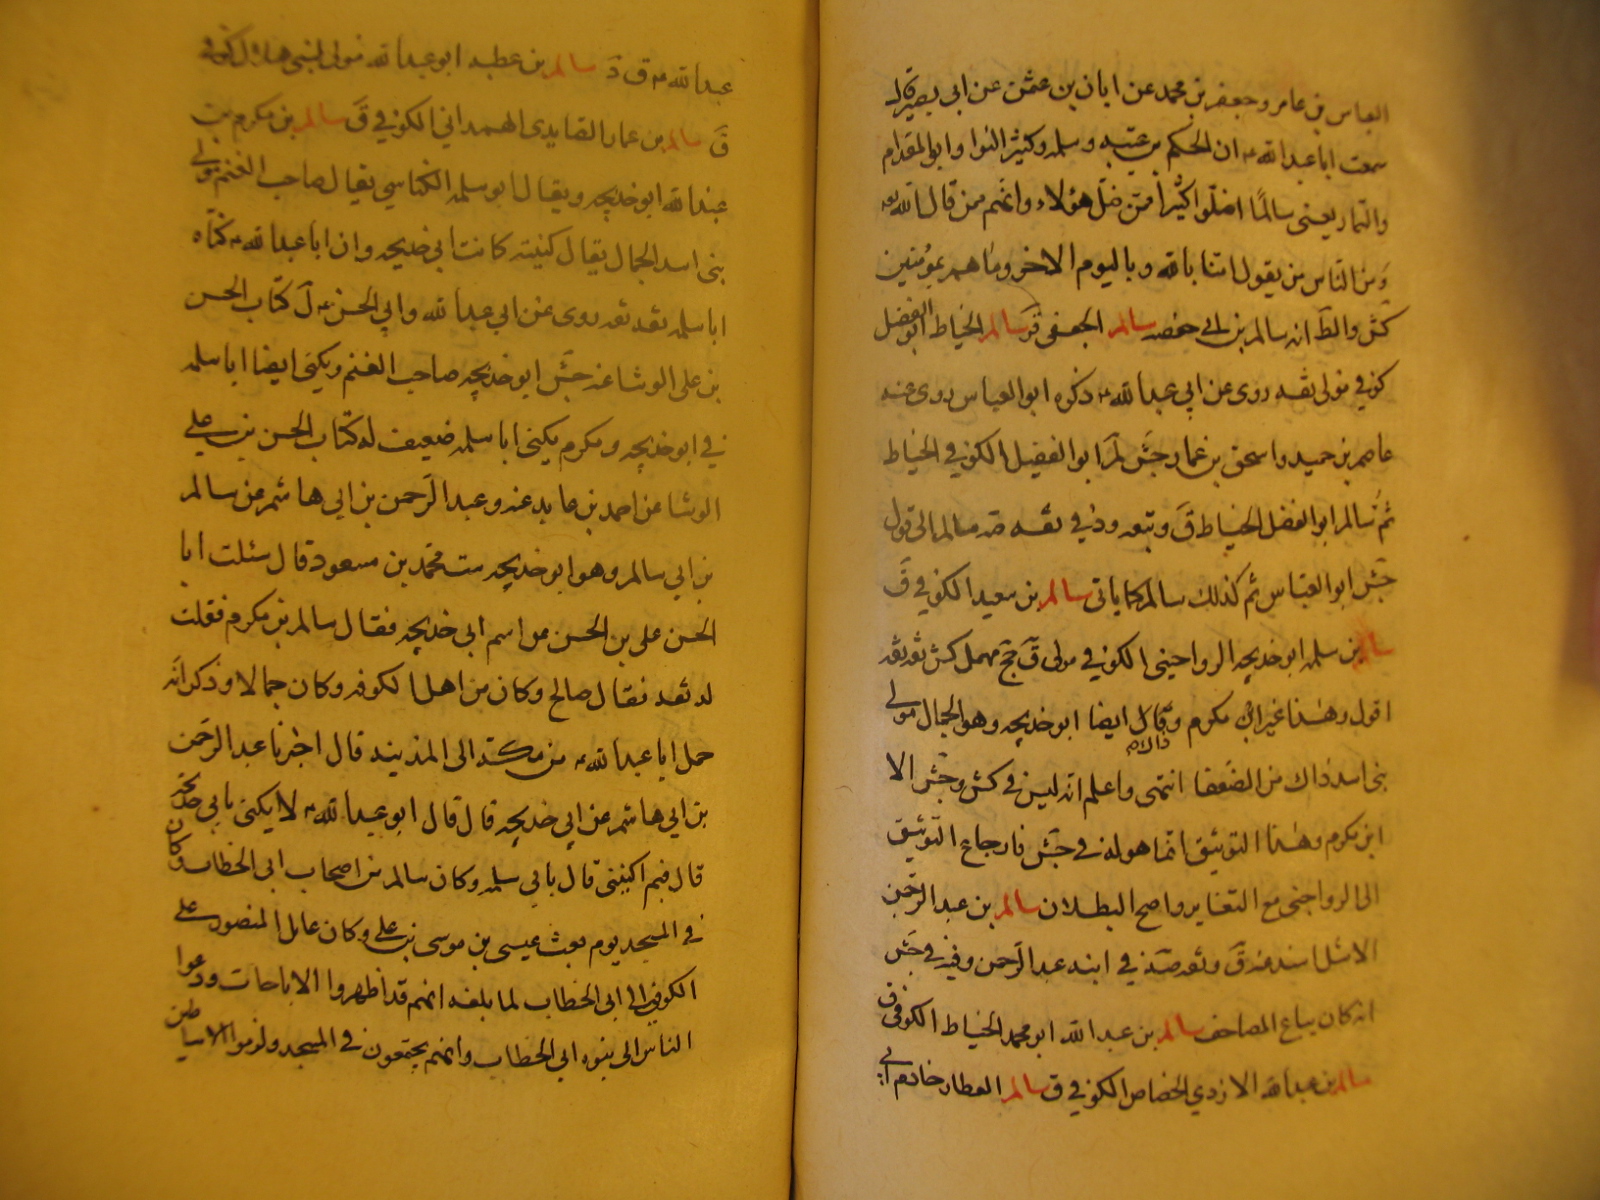 العباس بن عامر وجعفر بن محمد عن ابان بن عثمن عن ابى بصير قال
سمعت ابا عبد الله ع ان الحكم بن عتيبه وسلمه وكثير النوا وابو المقدام
والتمار يعنى سالمًا اضلّوا كثيرًا ممن ضلّ هؤلاء وانهم ممن قال الله تع
وَمن النّاس من يقول امنا بالله وباليوم الاخر وما هم بمؤمنين
كش والظ انه سالم بن ابى حفصه سالم الجعفى ق سالم الخياط ابو الفضل
كوفى مولى ثقه روى عن ابى عبد الله ع ذكره ابو العباس روى عنه
عاصم بن حميد واسحق بن عمار جش لم ابو الفضل الكوفى الخياط
ثم سالم ابو الفضل الخياط ق وبعه وفى ثقه سالم الى قول
جش ابو العباس ثم كذلك سالم كما ياتى سالم بن سعيد الكوفى ق
سالم بن سلمه ابو خديجه الرواجنى الكوفى مولى ق جح مهمل كش ثقه ثقه
اقول وهذا غير ابن مكرم وقال ايضا ابو خديجه وهو الجمال مولى
بنى اسد ذاك من الضعفا انتهى واعلم انه ليس فى كش وجش الا
ابن مكرم وهذا التوثيق انما هو له فى جش فارجاع التوثيق
الى الرواجنى مع التغاير واضح البطلان سالم بن عبد الرحمن
الاشل اسند عنه ق وثقه فى ابنه عبد الرحمن وفيه فى جش
انه كان بياع المصاحف سالم بن عبد الله ابو محمد الخياط الكوفى ق
سالم بن عبد الله الازدى الخصاص الكوفى ق سالم العطار خادم ابى
عبد الله ع ق د سالم بن عطيه ابو عبد الله مولى لبنى هلال كوفى
ق سالم بن عمار الصايدى الهمدانى الكوفى ق سالم بن مكرم بن
عبد الله ابو خديجه ويقال ابو سلمه الكناسى يقال صاحب الغنم مولى
بنى اسد الجمال يقال كنيته كانت ابى خديجه وان ابا عبد الله ع كناه
ابا سلمه ثقه ثقه روى عن ابى عبد الله وابى الحسن ع له كتاب الحسن
بن على الوشا عنه جش ابو خديجه صاحب الغنم ويكنى ايضا ابا سلمه
فى ابو خديجه ومكرم يكنى ابا سلمه ضعيف له كتاب الحسن بن على
الوشا عن احمد بن عايد عنه وعبد الرحمن بن ابى هاشم عن سالم
بن ابى سالم وهو ابو خديجه ست محمد بن مسعود قال سئلت ابا
الحسن على بن الحسن عن اسم ابى خديجه فقال سالم بن مكرم فقلت
له ثقه فقال صالح وكان من اهل الكوفه وكان جمالا وذكر انه
حمل ابا عبد الله ع من مكة الى المدينه قال اخبرنا عبد الرحمن
بن ابى هاشم عن ابى خديجه قال قال ابو عبد الله ع لا يكنى بابى خديجه
قال فبم اكتنى قال بابى سلمه وكان سالم من اصحاب ابى الخطاب وكان
فى المسجد يوم بعث عيسى بن موسى بن على وكان عامل المنصور على
الكوفه الى ابى الخطاب لما بلغه انهم قد اظهروا الاباحات ودعوا
الناس الى بنوه ابى الخطاب وانهم يجتمعون فى المسجد ولزموا الاساطين